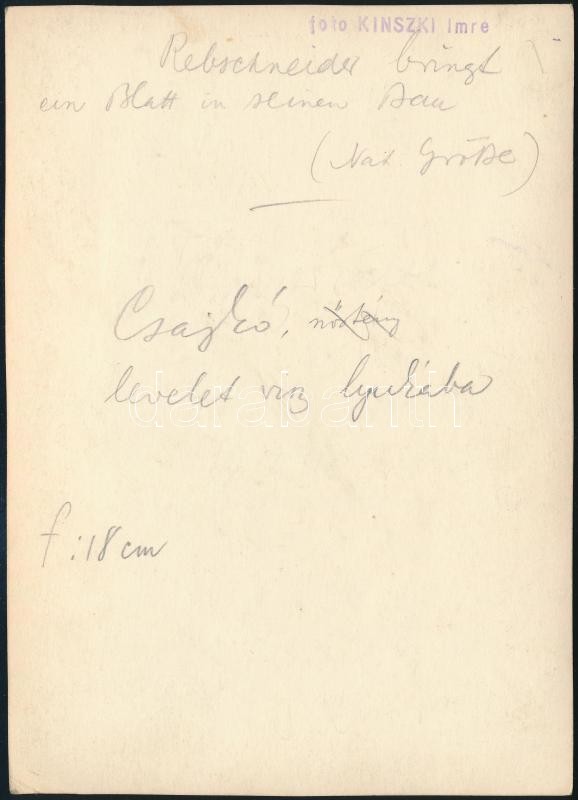 foto KINSZKI Imre
Rebschneider bringt
ein Blatt in seinen Bau
(Nat. Größe)
Csajkó, nőstény
levelet visz lyukába
darabanth
f:18 cm